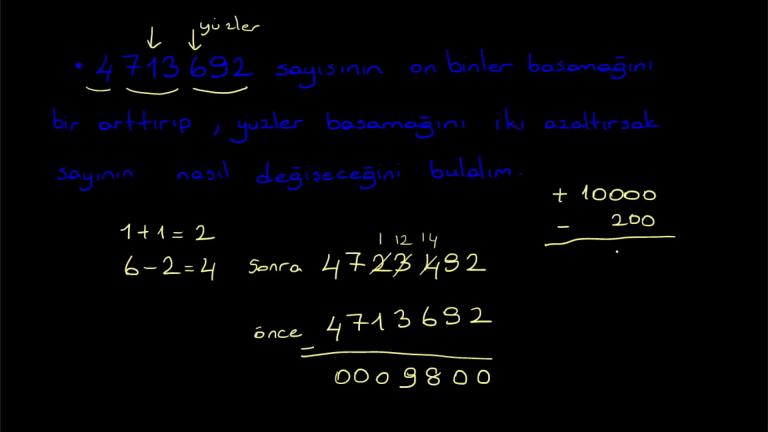 yüzler
• 4 713 692 sayısının on binler basamağını
bir arttırıp, yüzler basamağını iki azaltırsak
sayının nasıl değişeceğini bulalım.
+ 10000
- 200
1+1=2
6-2=4
1 12 14
sonra 4723492
önce 4713692
=
0009800